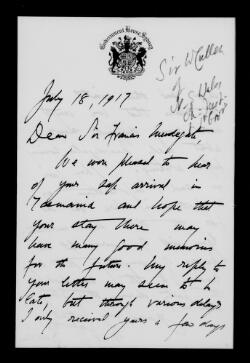 Government House, Sydney
July 18, 1917
Sir W Cullen
of
N. S. Wales
Dear Sir Francis
We were pleased to hear
of your safe arrival in
Tasmania and hope that
your stay there may
have many good memories
for the future. My reply to
your letter may seem to be
late, but through various delays
I only received yours a few days